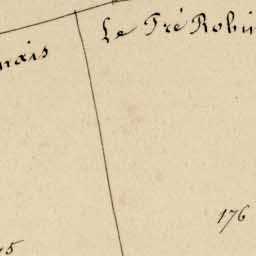 Le Pré Robin
nais
176
5